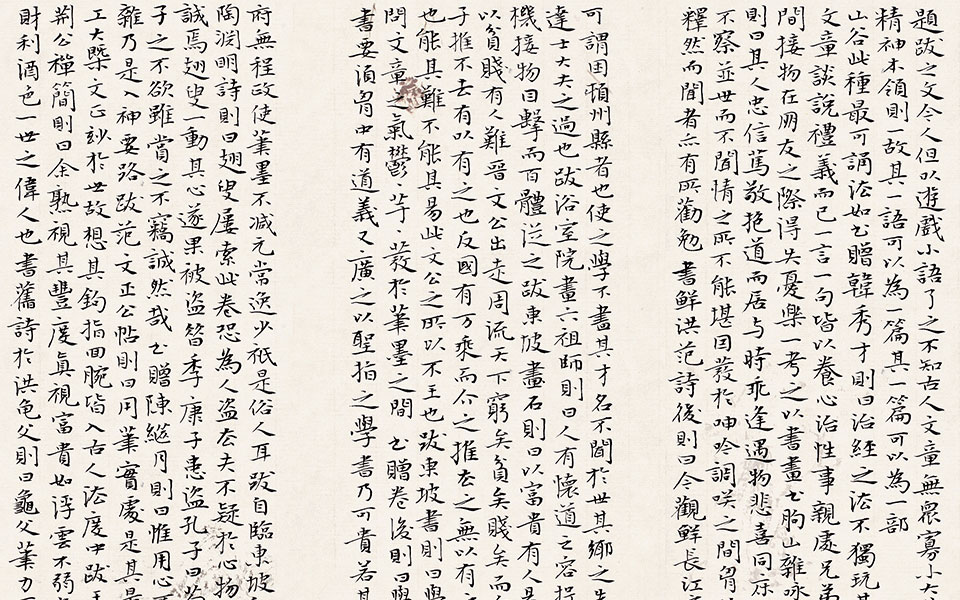 題跋之文今人但以遊戲小語了之不知古人文章無衆寡小大
精神本領則一故其一語可以為一篇其一篇可以為一部
山谷此種最可誦法如書贈韓秀才則曰治經之法不獨玩其
文章談說禮義而已一言一句皆以養心治性事親處兄弟
間接物在朋友之際得失憂樂一考之以書畫書朐山雜咏
則曰其人忠信篤敬抱道而居与時乖逢遇物悲喜同床
不察並世而不聞情之所不能堪因發於呻吟調咲之間胷
釋然而聞者亦有所勸勉 書鮮洪范詩後則曰今觀鮮長江
可謂困頓州縣者也使之學不盡其才名不聞於世其鄉之先
達士大夫之過也跋浴室院畫六祖師則曰人有懷道之容投
機接物曰擊而百體從之跋東坡畫石則曰以富貴有人易
以貧賤有人難晉文公出走周流天下窮矣貧矣賤矣而
子推不去有以有之也反國有万乘而介之推去之無以有之
也能其難不能其易此文公之所以不王也跋東坡書則曰學
問文章之氣鬱鬱芊芊發於筆墨之間 書贈卷後則曰學
書要須胷中有道義又廣之以聖指之學書乃可貴若其
府無程政使筆墨不減元常逸少祇是俗人耳跋自臨東坡
陶淵明詩則曰翅叟屢索此卷恐為人盜去夫不疑於心物
誠焉翅叟一動其心遂果被盜簪季康子患盜孔子曰苟
子之不欲雖賞之不竊誠然哉 書贈陳繼月則曰惟用心不
雜乃是入神要路跋范文正公帖則曰用筆實處是其最
工大槩文正妙於世故想其鈎指回腕皆入古人法度中跋王
荆公禪簡則曰余熟視其豐度真視富貴如浮雲不弱於
財利酒色一世之偉人也書舊詩於洪龟父則曰龜父筆力可